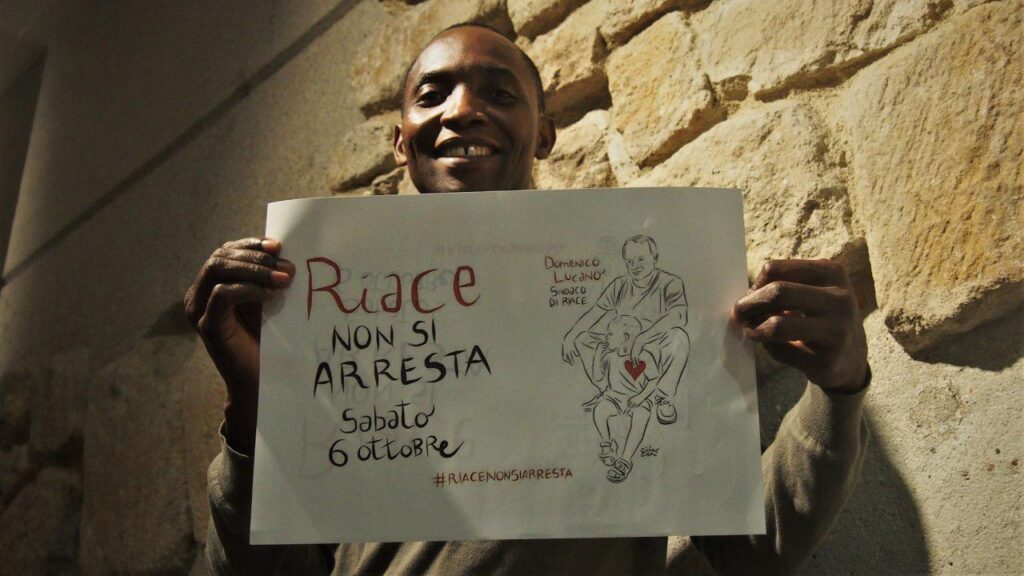 Riace
NON SI
ARRESTA
Sabato
6 ottobre
#RIACENONSIARRESTA
Domenico
Lucano
SINDACO
DI RIACE